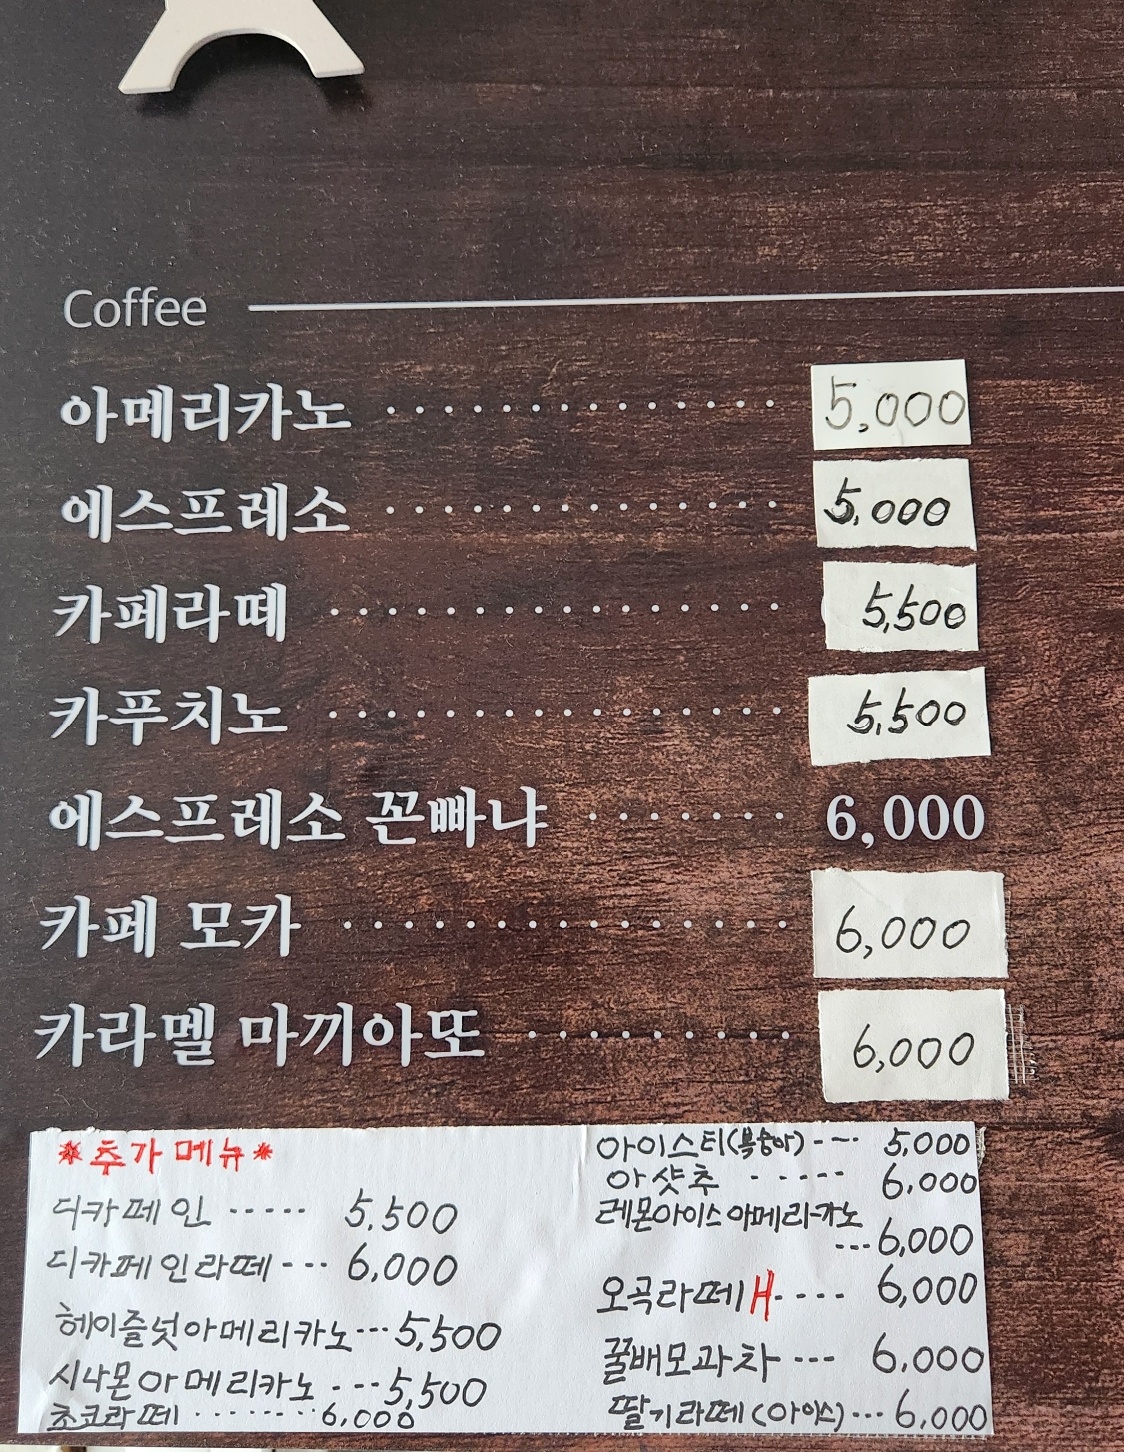 Coffee
아메리카노 ‥‥‥‥‥‥‥ 5,000
에스프레소 ‥‥‥‥‥‥‥ 5,000
카페라떼 ‥‥‥‥‥‥‥‥ 5,500
카푸치노 ‥‥‥‥‥‥‥‥ 5,500
에스프레소 꼰빠냐 ‥‥‥‥ 6,000
카페 모카 ‥‥‥‥‥‥‥‥ 6,000
카라멜 마끼아또 ‥‥‥‥‥ 6,000
*추가 메뉴*
디카페인 ----- 5,500
디카페인라떼 --- 6,000
헤이즐넛아메리카노 --- 5,500
시나몬아메리카노 --- 5,500
초코라떼 -------- 6,000
아이스티(복숭아) ---- 5,000
아샷추 ----- 6,000
레몬아이스아메리카노
--- 6,000
오곡라떼H ---- 6,000
꿀배모과차 --- 6,000
딸기라떼(아이스) --- 6,000